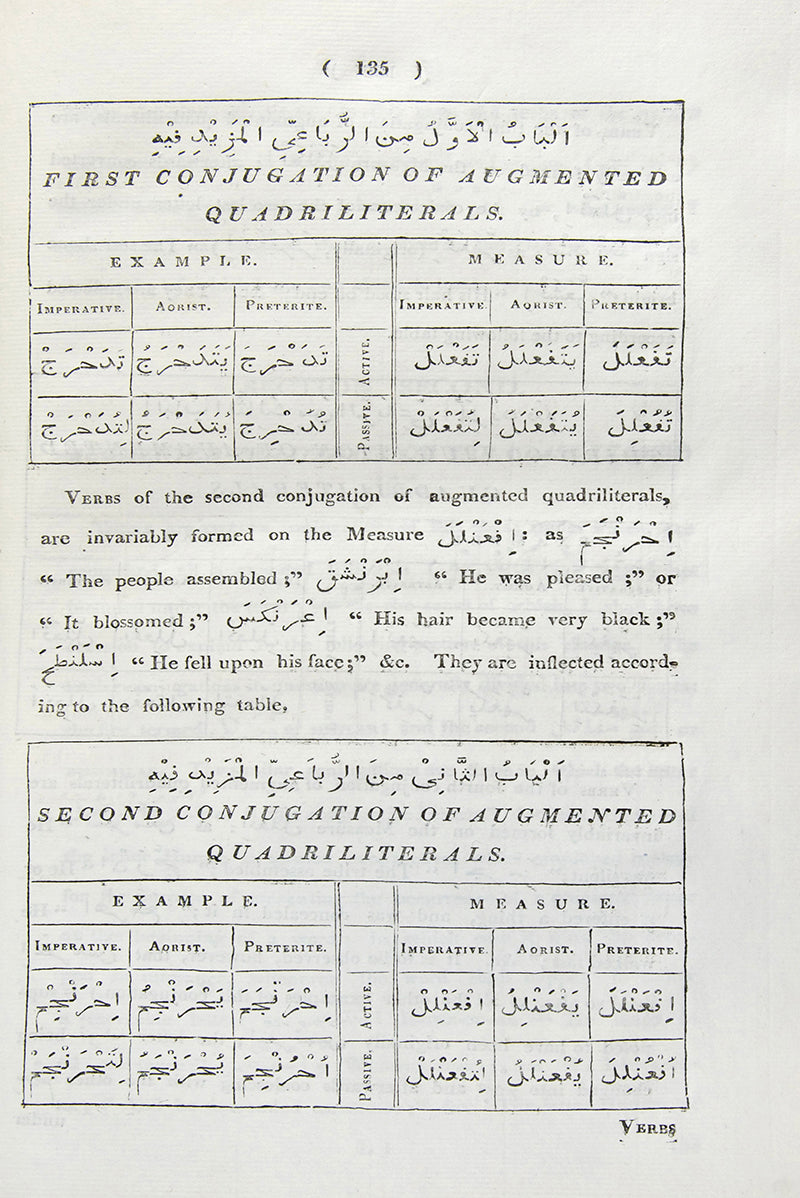 ( 135 )
اَلْبَابُ الْاَوَّلُ مِنَ الرُّبَاعِيِّ الْمَزِيْدِ فِيْهِ
FIRST CONJUGATION OF AUGMENTED
QUADRILITERALS.
EXAMPLE. MEASURE.
IMPERATIVE. AORIST. PRETERITE. IMPERATIVE. AORIST. PRETERITE.
تَدَحْرَجْ يَتَدَحْرَجُ تَدَحْرَجَ ACTIVE. تَفَعْلَلْ يَتَفَعْلَلُ تَفَعْلَلَ
لِتُتَدَحْرَجْ يُتَدَحْرَجُ تُدُحْرِجَ PASSIVE. لِتُتَفَعْلَلْ يُتَفَعْلَلُ تُفُعْلِلَ
VERBS of the second conjugation of augmented quadriliterals,
are invariably formed on the Measure اِفْعَنْلَلَ: as اِحْرَنْجَمَ
“ The people assembled ;” اِبْرَنْشَقَ “ He was pleased ;” or
“ It blossomed ;” اِعْرَنْكَسَ “ His hair became very black ;”
اِسْلَنْطَحَ “ He fell upon his face ;” &c. They are inflected accord-
ing to the following table,
اَلْبَابُ الثَّانِيْ مِنَ الرُّبَاعِيِّ الْمَزِيْدِ فِيْهِ
SECOND CONJUGATION OF AUGMENTED
QUADRILITERALS.
EXAMPLE. MEASURE.
IMPERATIVE. AORIST. PRETERITE. IMPERATIVE. AORIST. PRETERITE.
اِحْرَنْجِمْ يَحْرَنْجِمُ اِحْرَنْجَمَ ACTIVE. اِفْعَنْلِلْ يَفْعَنْلِلُ اِفْعَنْلَلَ
لِتُحْرَنْجَمْ يُحْرَنْجَمُ اُحْرُنْجِمَ PASSIVE. لِتُفْعَنْلَلْ يُفْعَنْلَلُ اُفْعُنْلِلَ
VERBS